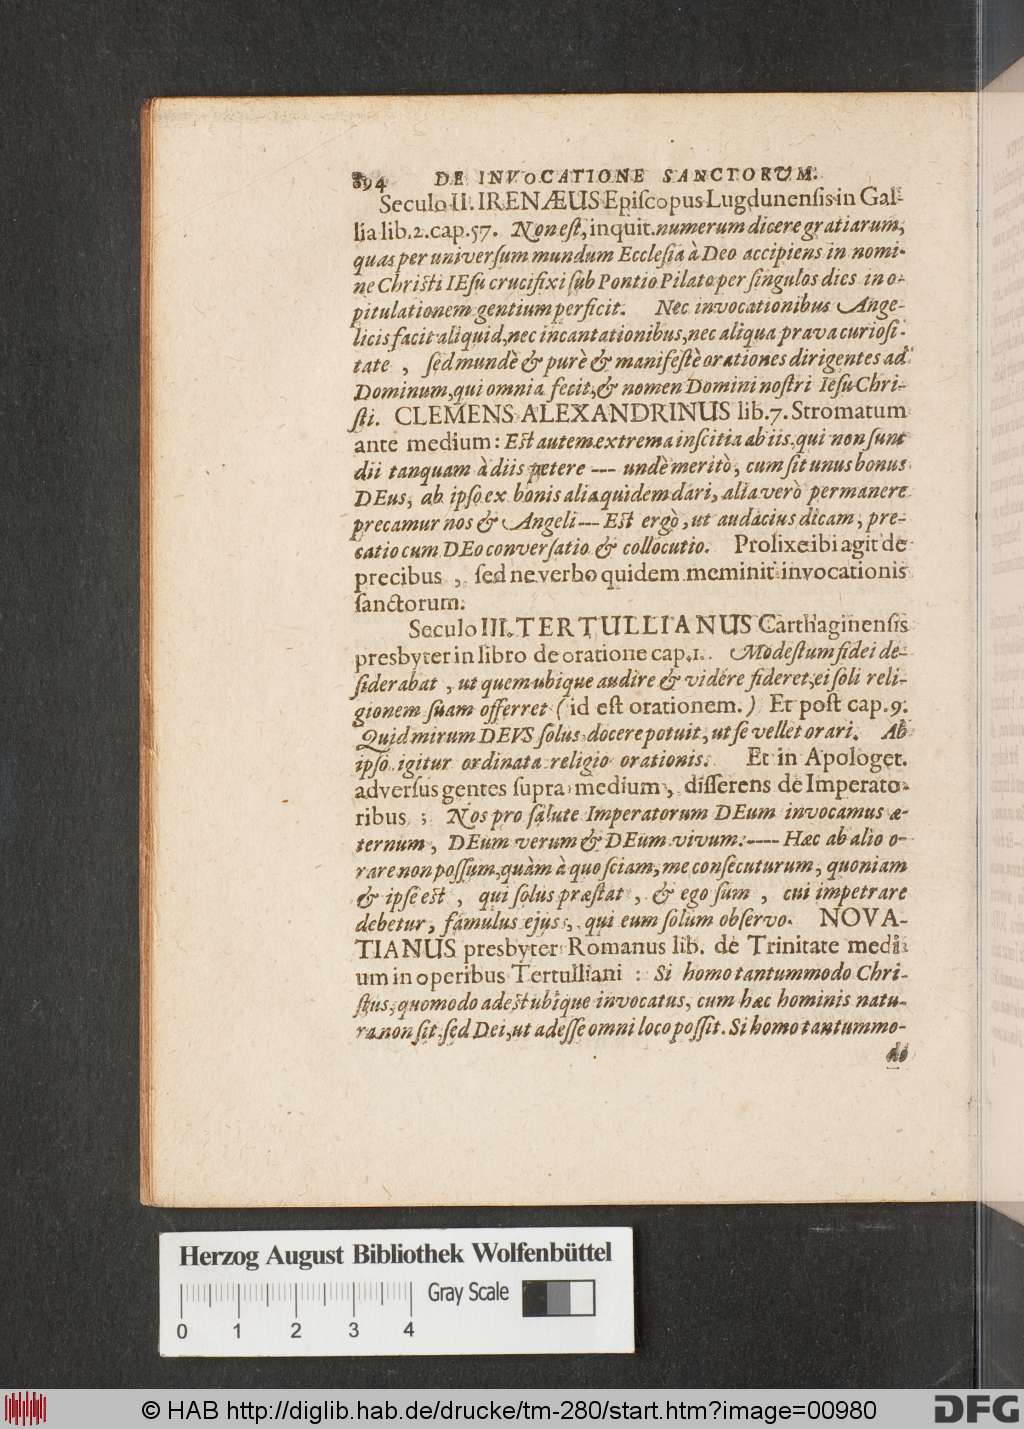 894 DE INVOCATIONE SANCTORUM.
Seculo II. IRENÆUS Epiſcopus Lugdunenſis in Gal-
lia lib. 2. cap. 57. Non eſt, inquit. numerum dicere gratiarum,
quas per univerſum mundum Eccleſia à Deo accipiens in nomi-
ne Chriſti IEſu crucifixi ſub Pontio Pilato per ſingulos dies in o-
pitulationem gentium perficit. Nec invocationibus Ange-
licis facit aliquid, nec incantationibus, nec aliqua prava curioſi-
tate, ſed mundè & purè & manifeſtè orationes dirigentes ad
Dominum, qui omnia fecit, & nomen Domini noſtri Ieſu Chri-
ſti. CLEMENS ALEXANDRINUS lib. 7. Stromatum
ante medium: Eſt autem extrema inſcitia ab iis, qui non ſunt
dii tanquam à diis petere --- undè meritò, cum ſit unus bonus
DEus, ab ipſo ex bonis alia quidem dari, alia verò permanere
precamur nos & Angeli --- Eſt ergò, ut audacius dicam, pre-
catio cum DEo converſatio & collocutio. Prolixe ibi agit de
precibus, ſed ne verbo quidem meminit invocationis
ſanctorum.
Seculo III. TERTULLIANUS Carthaginenſis
presbyter in libro de oratione cap. 1. Modeſtum fidei de-
ſiderabat, ut quem ubique audire & videre fideret, ei ſoli reli-
gionem ſuam offerret (id eſt orationem.) Et poſt cap. 9.
Quid mirum DEVS ſolus docere potuit, ut ſe vellet orari. Ab
ipſo igitur ordinata religio orationis. Et in Apologet.
adverſus gentes ſupra medium, diſſerens de Imperato-
ribus; Nos pro ſalute Imperatorum DEum invocamus æ-
ternum, DEum verum & DEum vivum. ---- Hæc ab alio o-
rare non poſſum, quàm à quo ſciam, me conſecuturum, quoniam
& ipſe eſt, qui ſolus præſtat, & ego ſum, cui impetrare
debetur, famulus ejus, qui eum ſolum obſervo. NOVA-
TIANUS presbyter Romanus lib. de Trinitate medi-
um in operibus Tertulliani: Si homo tantummodo Chri-
ſtus, quomodo adeſt ubique invocatus, cum hæc hominis natu-
ra non ſit, ſed Dei, ut adeſſe omni loco poſſit. Si homo tantummo-
do
Herzog August Bibliothek Wolfenbüttel
Gray Scale
0 1 2 3 4
© HAB http://diglib.hab.de/drucke/tm-280/start.htm?image=00980
DFG